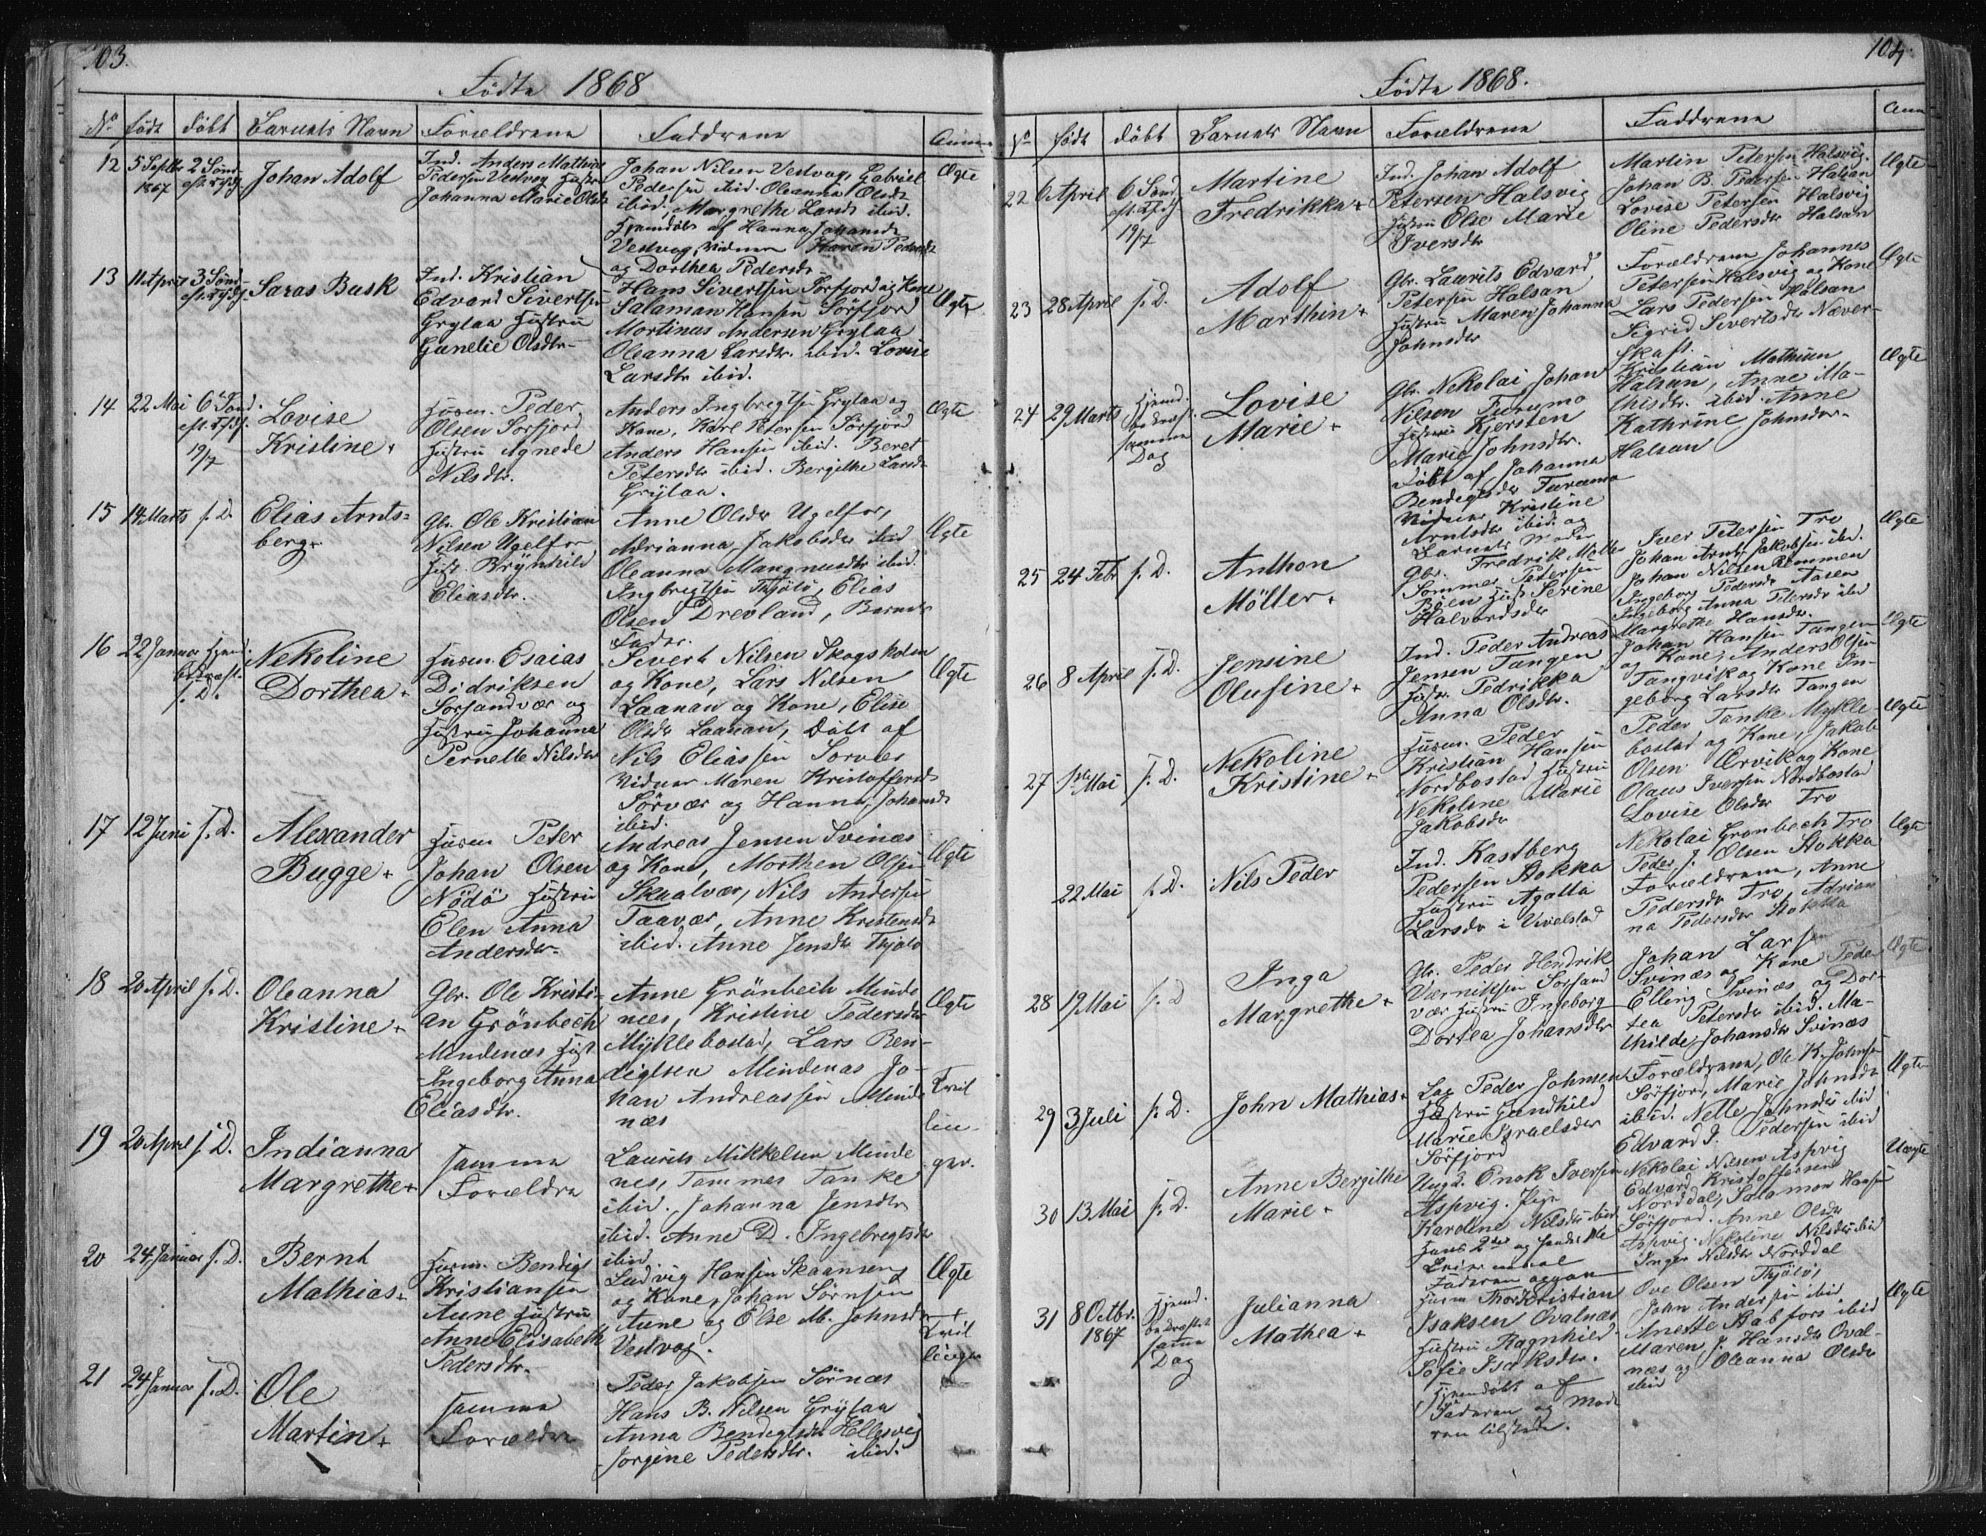 103.
Födte 1868
No födt döbt Barnets Navn Forældrene Faddrene Anm
12 5 Septbr 1867 2 Sönd. eft. Johan Adolf
Ind. Anders Mathias
Pedersen Vestvog Hustru
Johanna Marie Olsdr
Johan Nilsen Vestvog, Gabriel
Pedersen ibid. Oleanna Olsdr
ibid., Margrethe Larsdr ibid.
Hjemdöbt af Hanna Johansdr
Vestvog, Vidner Maren Pedersdr
og Dorthea Pedersdr
Ægte
13 11 April 3 Sönd. Saras Busk
Ind. Kristian
Edvard Sivertsen
Grytaa Hustru
Gunelie Olsdtr
Hans Sivertsen Sörfjord og Kone
Salamon Hansen Sörfjord
Mortinus Andersen Grytaa
Oleanna Larsdtr. ibid. Lovise
Larsdtr ibid.
Ægte
14 22 Mai 6 Sönd. 19/7 Lovise
Kristine
Husm. Peder
Olsen Sörfjord
Hustru Agnede
Nilsdtr.
Anders Ingbregtsen Grytaa og
Kone, Karl Petersen Sörfjord
Anders Hansen ibid. Beret
Petersdtr ibid. Bergithe Larsdr
Grytaa.
Ægte
15 14 Marts s. D. Elias Arnts-
berg
Gbr. Ole Kristian
Nilsen Ugelfor
Hust. Brynhild
Eliasdtr.
Anne Olsdr Ugelfor,
Adrianna Jakobsdr ibid
Oleanna Mangnusdtr ibid.
Ingbregtsen Thjötö, Elias
Olsen Drevland, Barnets
Fader.
Ægte
16 22 Januar Hjemd. bekræft. s. D. Nekoline
Dorthea
Husm. Esaias
Didriksen
Sörsandvær og
Hustru Johanna
Pernelle Nilsdtr
Sivert Nilsen Skogsholm
og Kone, Lars Nilsen
Laanan og Kone, Elise
Olsdr Laanan, Döbt af
Nils Eliassen Sorvær
Vidner Maren Kristoffersdr
Sörvær og Hanna Johansdr
ibid.
Ægte
17 12 Juni s. D. Alexander
Bugge
Husm Peter
Johan Olsen
Nödö Hustru
Elen Anna
Andersdtr.
Andreas Jensen Svinæs
og Kone, Morthen Olsen
Skaalvær, Nils Andersen
Taavær, Anne Kristensdr
ibid. Anne Jensdtr Thjötö
Ægte
18 20 April s. D. Oleanna
Kristine
Gbr. Ole Kristi-
an Grönbech
Mindenæs Hust
Ingeborg Anna
Eliasdtr.
Anne Grönbech Minde
næs, Kristine Pedersdtr
Myklebostad, Lars Ben-
digtsen Mindenæs Jo-
han Andreassen Minde
næs
Ægte
Tvil
lin-
ger.
19 20 April s. D. Indianna
Margrethe
Samma
Forældre
Laurits Mikkelsen Minde
næs, Tammes Tanke
ibid. Johanna Jensdtr
ibid. Anne D. Ingebregtsdtr
ibid.
20 24 Januar s. D. Bernt
Mathias
Husm. Bendigt
Kristiansen
Aune Hustru
Anne Elisabeth
Pedersdtr.
Ludvig Hansen Skaansen
og Kone, Johan Sörnsen
Aune og Else M. Johnsdr
Vestvog.
Ægte
Tvil
linger
21 24 Januar s. D. Ole
Martin
Samma
Forældre
Peder Jakobsen Sörnæs
Hans B. Nilsen Grytaa
Anna Bendigtsdtr Hellesvig
Jörgine Pedersdtr. ibid.
104.
Födte 1868.
No födt döbt Barnets Navn Forældrene Faddrene Anm
22 6 April 6 Sönd 19/7 Martine
Fredrikka
Ind. Johan Adolf
Petersen Halsvig
Hustru Else Marie
Iversdtr
Martin Petersen Halsvig.
Johan B. Pedersen Halsan
Lovise Petersen Halsvig
Oline Pedersdtr Halsan
Ægte
23 28 April s. D. Adolf
Marthin
Gbr. Laurits Edvard
Petersen Halsan
Hustru Maren Johanna
Johnsdtr
Forældrene Johannes
Petersen Halsvig og Kone
Lars Pedersen Halsan
Sigrid Sivertsdtr Næver-
skaft.
Ægte
24 29 Marts Hjemd. bekræft. samme Dag Lovise
Marie
Gbr. Nekolai Johan
Nilsen Furumo
Hustru Kjersten
Marie Johnsdtr.
Döbt af Johanna
Bendigtsdtr Furumo
Vidner Kristine
Arntsdtr ibid. og
Barnets Moder
Kristian Mathisen
Halsan, Anne Ma-
thisdtr. ibid. Anne
Kathrine Johnsdtr.
Halsan
Ægte
25 24 Febr s. D. Anthon
Möller
Gbr. Fredrik Möller
Sommer Petersen
Böen Hust Serine
Halvordsdtr
Iver Petersen Tro
Johan Arnt Jakobsen ibd.
Johan Nilsen Remmen
Ingeborg Pedersdr Aasen
Ingeborg Anna Petersdtr ibd
Margrethe Hansdtr.
Ægte
26 8 April s. D. Jensine
Olufine
Ind. Peder Andreas
Jensen Tangen
Hustr. Pedrikka
Anna Olsdtr.
Johan Hansen Tangen
og Kone, Anders Olsen
Tangvik og Kone In-
geborg Larsdtr Tangen
Ægte
27 1ste Mai s. D. Nekoline
Kristine
Husm. Peder
Kristian Hansen
Nordbostad Hustru
Nekoline Marie
Jakobsdr
Peder Tanke Mykle
bostad og Kone, Jakob
Olsen Ørvik og Kone
Olaus Iversen Nordbostad
Lovise Olsdtr Tro
Ægte
22 Mai s. D. Nils Peder
Ind. Kastberg
Pedersen Stokka
Hustru Agatta
Larsdr i Vivelstad
Nekolai Grönbech Tro
Peder J. Olsen Stokka
Forældrene, Anne
Pedersdr Tro, Adrian
na Pedersdtr Stokka
Ægte
28 19 Mai s. D Inga
Margrethe
Gbr. Peder Hendrik
Værnissen Sörsand
vær Hustru Ingeborg
Dortea Johansdtr
Johan Larsen
Svinæs og Kone Peder
Elling Svinæs og Dor-
tea Petersdtr ibid. Ma-
thilde Johansdtr Svinæs
Ægte
29 3 Juli s. D. John Mathias
Peder Johnsen
Hustru Gundhild
Marie Israelsdtr
Sörfjord
Forældrene, Ole K. Johnsen
Sörfjord, Marie Johnsdtr
ibid. Nelle Johnsdtr ibid
Edvard J. Pedersen ibid
Ægte
30 13 Mai s. D. Anne Bergithe
Marie
Ungk. Enok Iversen
Aspvig. Pige
Karoline Nilsdtr ibid.
Faderen
Nekolai Nilsen Aspvig
Edvard Kristoffersen
Norddal, Salamon Hansen
Sörfjord. Anne Olsdtr
Aspvig. Nekoline Nilsdtr ibid
Inger Nilsdtr Norddal
Uægte
31 8 Octbr. 1867 Hjemd. bekræftet samme Dag Julianna
Mathea
Husm Thor Kristian
Isaksen Ovalnæs
Hustru Ragnhild
Sofie Isaksdtr.
Hjemdöbt af
Faderen og Mode
ren tilstede.
Ove Olsen Thjötö,
John Andersen ibid
Anette Babfors ibid
Maren J. Hansdtr Oval-
næs og Oleanna Olsdr
ibid
Ægte